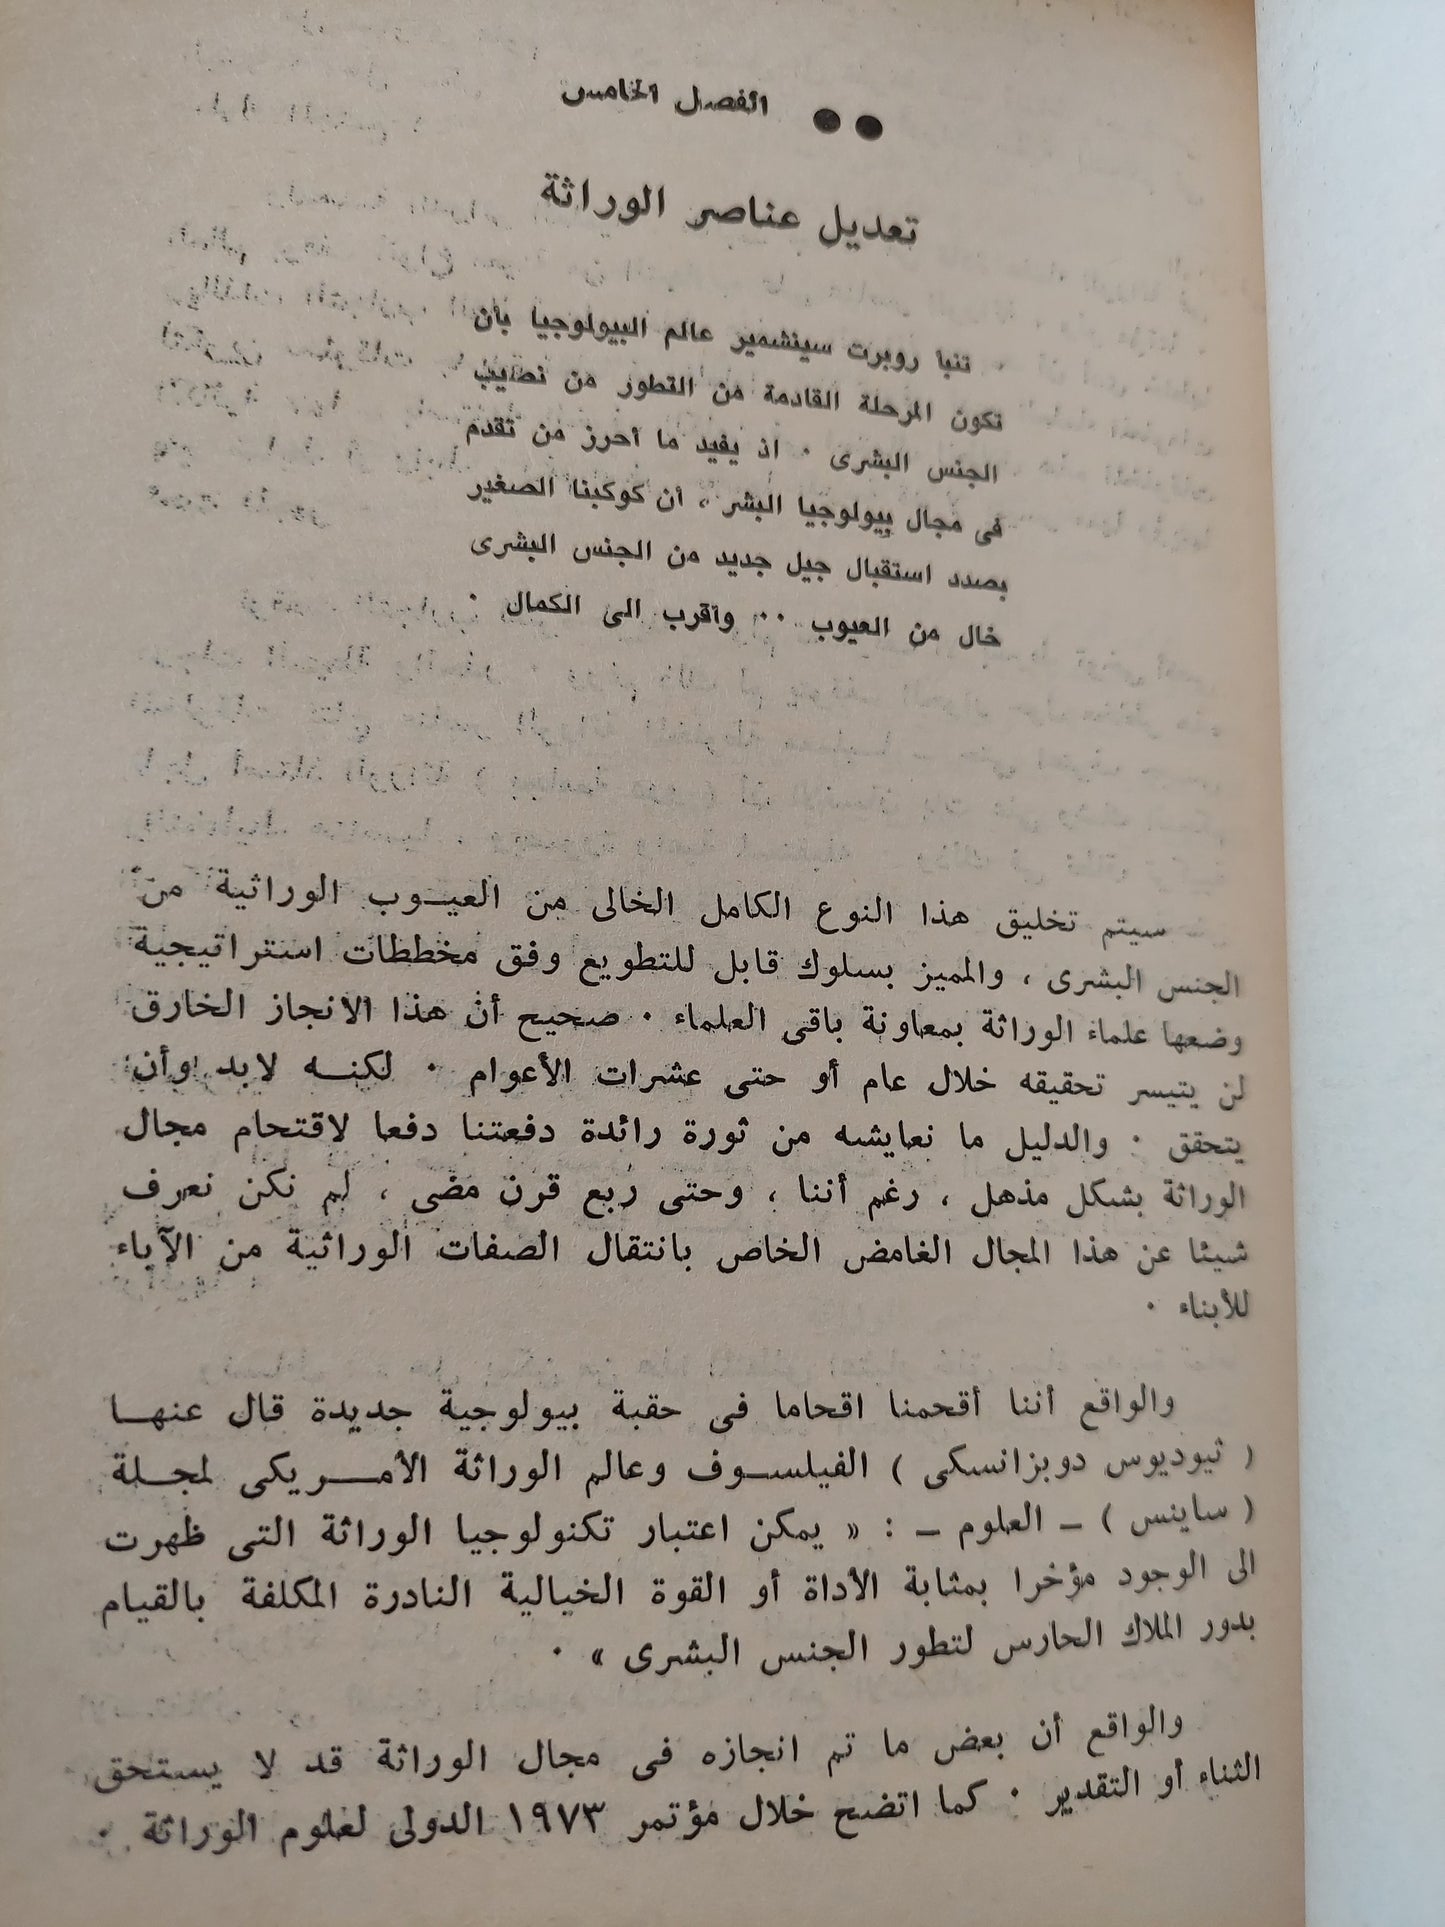 ●● الفصل الخامس
تعديل عناصر الوراثة
تنبا روبرت سينشمير عالم البيولوجيا بأن
تكون المرحلة القادمة من التطور من نصيب
الجنس البشرى . اذ يفيد ما أحرز من تقدم
فى مجال بيولوجيا البشر ، أن كوكبنا الصغير
بصدد استقبال جيل جديد من الجنس البشرى
خال من العيوب .. وأقرب الى الكمال .
سيتم تخليق هذا النوع الكامل الخالى من العيوب الوراثية من
الجنس البشرى ، والمميز بسلوك قابل للتطويع وفق مخططات استراتيجية
وضعها علماء الوراثة بمعاونة باقى العلماء . صحيح أن هذا الانجاز الخارق
لن يتيسر تحقيقه خلال عام أو حتى عشرات الأعوام . لكنه لابد وأن
يتحقق . والدليل ما نعايشه من ثورة رائدة دفعتنا دفعا لاقتحام مجال
الوراثة بشكل مذهل ، رغم أننا ، وحتى ربع قرن مضى ، لم نكن نعرف
شيئا عن هذا المجال الغامض الخاص بانتقال الصفات الوراثية من الآباء
للأبناء .
والواقع أننا أقحمنا اقحاما فى حقبة بيولوجية جديدة قال عنها
( ثيوديوس دوبزانسكى ) الفيلسوف وعالم الوراثة الأمريكى لمجلة
( ساينس ) – العلوم – : « يمكن اعتبار تكنولوجيا الوراثة التى ظهرت
الى الوجود مؤخرا بمثابة الأداة أو القوة الخيالية النادرة المكلفة بالقيام
بدور الملاك الحارس لتطور الجنس البشرى » .
والواقع أن بعض ما تم انجازه فى مجال الوراثة قد لا يستحق
الثناء أو التقدير . كما اتضح خلال مؤتمر ١٩٧٣ الدولى لعلوم الوراثة .